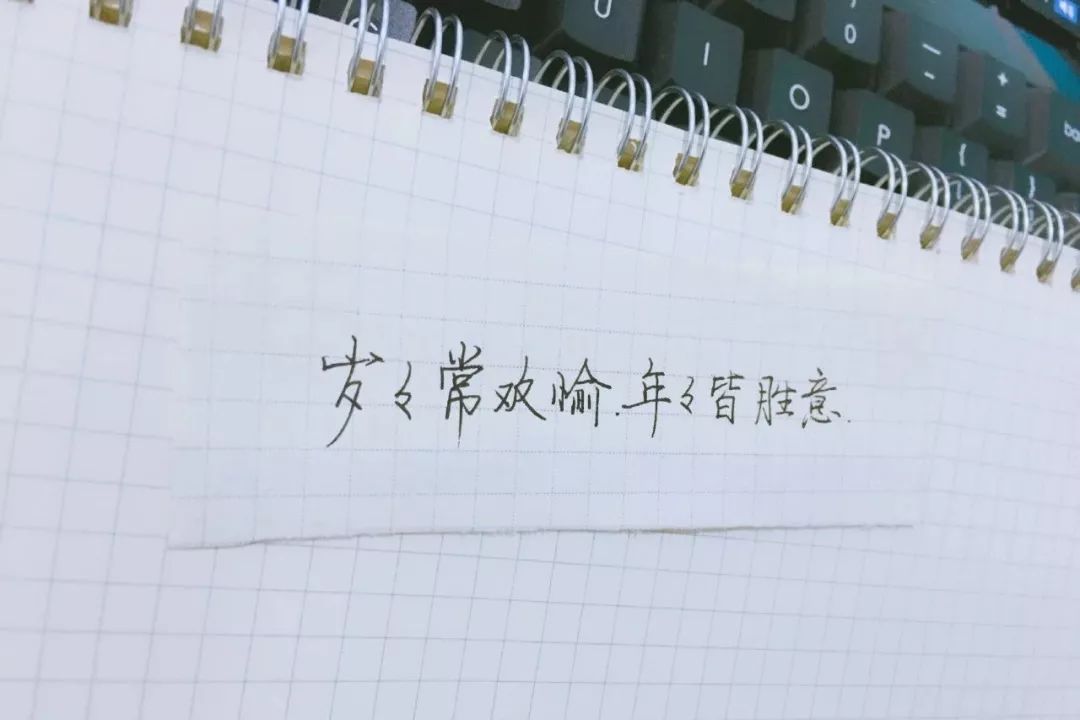 U
I
O
P
0
—
-
+
=
{
}
ba
岁々常欢愉.年々皆胜意.